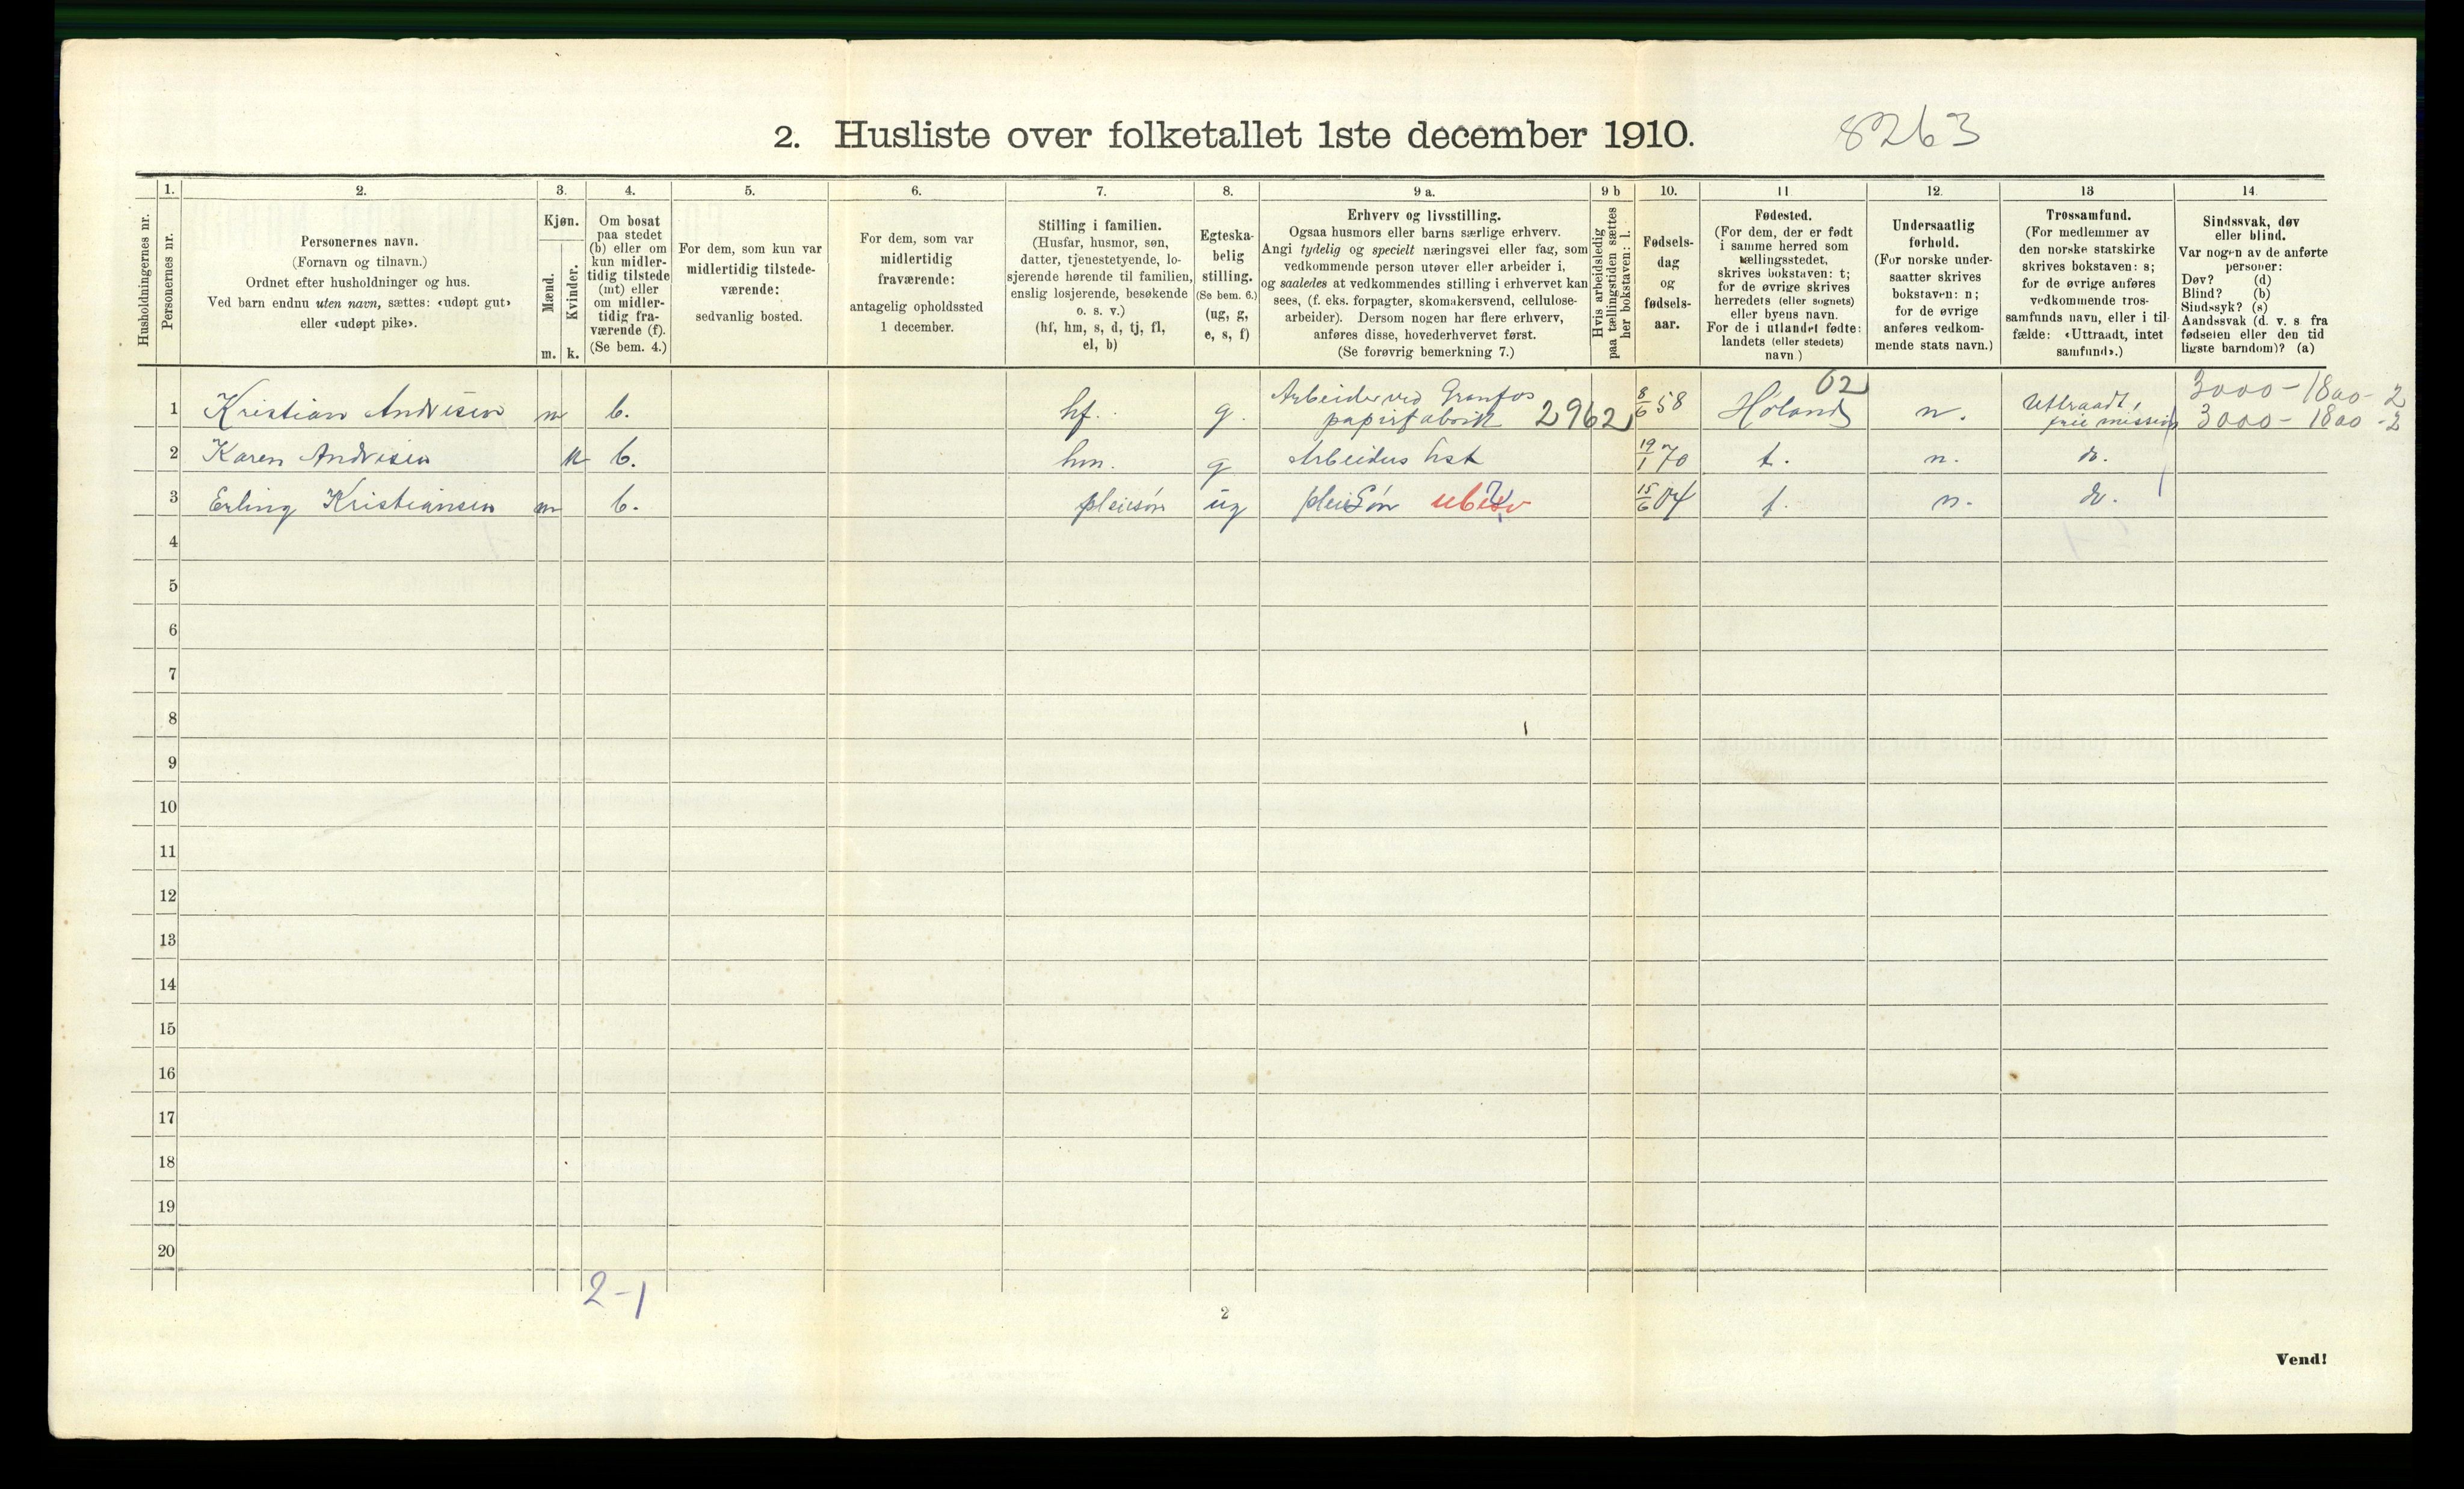 2. Husliste over folketallet 1ste december 1910. 8263
Husholdningernes nr.
1.
Personernes nr.
2.
Personernes navn.
(Fornavn og tilnavn.)
Ordnet efter husholdninger og hus.
Ved barn endnu uten navn, sættes: «udøpt gut»
eller «udøpt pike».
3.
Kjøn.
Mænd.
Kvinder.
m. k.
4.
Om bosat
paa stedet
(b) eller om
kun midler-
tidig tilstede
(mt) eller
om midler-
tidig fra-
værende (f).
(Se bem. 4.)
5.
For dem, som kun var
midlertidig tilstede-
værende:
sedvanlig bosted.
6.
For dem, som var
midlertidig
fraværende:
antagelig opholdssted
1 december.
7.
Stilling i familien.
(Husfar, husmor, søn,
datter, tjenestetyende, lo-
sjerende hørende til familien,
enslig losjerende, besøkende
o. s. v.)
(hf, hm, s, d, tj, fl,
el, b)
8.
Egteska-
belig
stilling.
(Se bem. 6.)
(ug, g,
e, s, f)
9 a.
Erhverv og livsstilling.
Ogsaa husmors eller barns særlige erhverv.
Angi tydelig og specielt næringsvei eller fag, som
vedkommende person utøver eller arbeider i,
og saaledes at vedkommendes stilling i erhvervet kan
sees, (f. eks. forpagter, skomakersvend, cellulose-
arbeider). Dersom nogen har flere erhverv,
anføres disse, hovederhvervet først.
(Se forøvrig bemerkning 7.)
9 b
Hvis arbeidsledig
paa tællingstiden sættes
her bokstaven: l.
10.
Fødsels-
dag
og
fødsels-
aar.
11
Fødested.
(For dem, der er født
i samme herred som
tællingsstedet,
skrives bokstaven: t;
for de øvrige skrives
herredets (eller sognets)
eller byens navn.
For de i utlandet fødte:
landets (eller stedets)
navn)
12.
Undersaatlig
forhold.
(For norske under-
saatter skrives
bokstaven: n;
for de øvrige
anføres vedkom-
mende stats navn.)
13
Trossamfund.
(For medlemmer av
den norske statskirke
skrives bokstaven: s;
for de øvrige anføres
vedkommende tros-
samfunds navn, eller i til-
fælde: «Uttraadt, intet
samfund».)
14.
Sindssvak, døv
eller blind.
Var nogen av de anførte
personer:
Døv? (d)
Blind? (b)
Sindssyk? (s)
Aandssvak (d. v. s fra
fødselen eller den tid
ligste barndom)? (a)
1 Kristian Andresen m b. hf. g. Arbeider ved Granfos papirfabrik 2962 8/6 58 Høland 02 n. Uttraadt, frie mission 3000 - 1800 - 2
3000 - 1800 - 2
2 Karen Andresen k b. hm. g Arbeiders hst 19/1 70 t. n. do.
3 Erling Kristiansen m b. pleiesøn ug pleiesøn 15/6 04 t. n. do.
4
5
6
7
8
9
10
11
12
13
14
15
16
17
18
19
20
2-1
2
Vend!